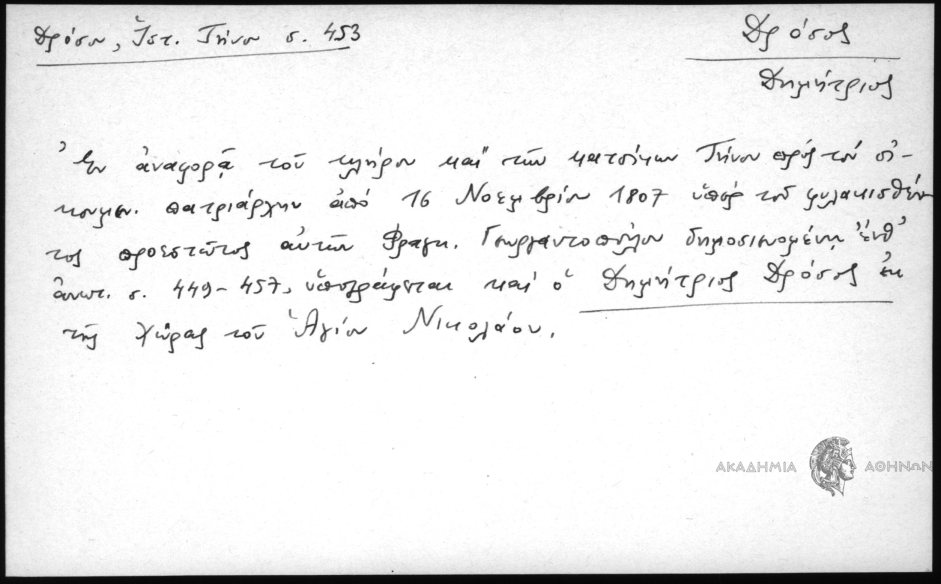 Δρόσου, Ἱστ. Τήνου σ. 453
Δρόσος
Δημήτριος
Ἐν ἀναφορᾷ τοῦ κλήρου καὶ τῶν κατοίκων Τήνου πρὸς τὸν οἰ-
κουμεν. πατριάρχην ἀπὸ 16 Νοεμβρίου 1807 ὑπὲρ τοῦ φυλακισθέν
τος προεστῶτος αὐτῶν Φραγκ. Γεωργαντοπούλου δημοσιευομένῃ ἔνθ'
ἀνωτ. σ. 449-457, ὑπογράφεται καὶ ὁ Δημήτριος Δρόσος ἐκ
τῆς χώρας τοῦ Ἁγίου Νικολάου.
ΑΚΑΔΗΜΙΑ ΑΘΗΝΩΝ